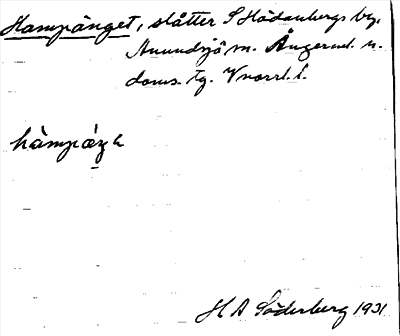 Hampänget, slåtter S Hädanbergs by,
Anundsjö m. Ångerml. n.
doms. tg. Vnorrl. l.
hàmpáŋe
H A Söderberg 1931